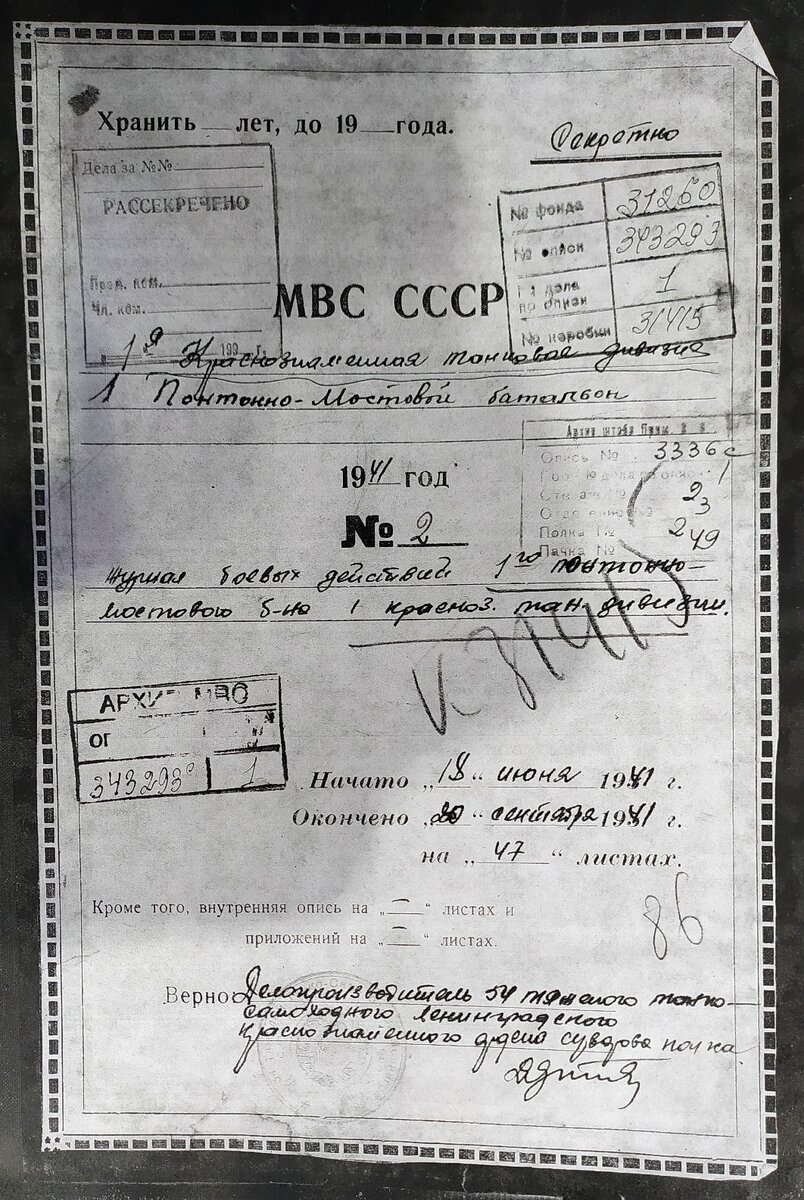 Хранить лет, до 19 года.
Секретно
Дела за №№
РАССЕКРЕЧЕНО
Чл. ком.
199 г.
№ фонда 31260
№ описи 343293
№ дела по описи 1
№ коробки 31415
МВС СССР
1я Краснознаменная танковая дивизия
1 Понтонно-Мостовой батальон
Архив штаба
Опись № 3336с
1
23
Полка № 2
Пачка № 49
1941 год
№ 2
Журнал боевых действий 1го понтонно-
мостового б-на 1 красноз. тан. дивизии.
к 31415
АРХИВ МВО
343293с 1
Начато „18“ июня 1941 г.
Окончено „20“ сентября 1941 г.
на „47“ листах.
Кроме того, внутренняя опись на „—“ листах и
приложений на „—“ листах.
86
Верно: Делопроизводитель 54 тяжелого танко-
самоходного Ленинградского
Краснознаменного ордена суворова полка